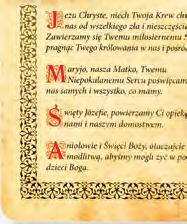 Jezu Chryste, niech Twoja Krew chr
nas od wszelkiego zła i nieszczęści
Zawierzamy się Twemu miłosiernemu S
pragnąc Twego królowania w nas i pośró
Maryjo, nasza Matko, Twemu
Niepokalanemu Sercu poświęcam
nas samych i wszystko, co mamy.
Święty Józefie, powierzamy Ci opiekę
nami i naszym domostwem.
Aniołowie i Święci Boży, otaczajcie
modlitwą, abyśmy mogli żyć w po
dzieci Boga.